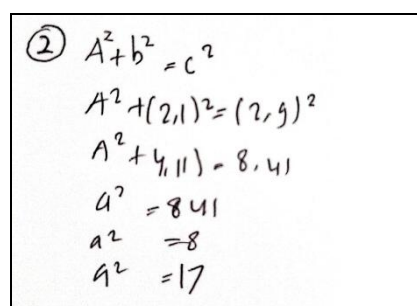 ② A²+b²=c²
A²+(2,1)²=(2,9)²
A²+4,11)=8.41
a²=841
a²=8
a²=17